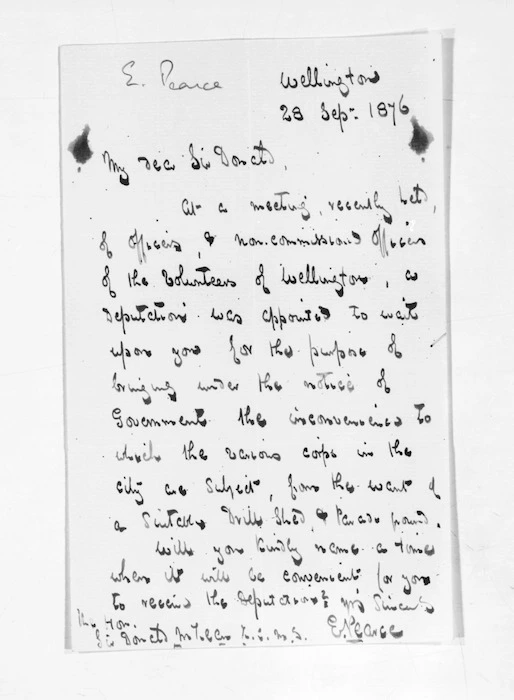 E. Pearce
Wellington
28 Sepr. 1876
My dear Sir Donald,
At a meeting, recently held,
of officers, & non-commissioned officers
of the Volunteers of Wellington, a
Deputation was appointed to wait
upon you for the purpose of
bringing under the notice of
Government the inconveniences to
which the various corps in the
city are subject, from the want of
a suitable Drill Shed, & Parade ground.
Will you kindly name a time
when it will be convenient for you
to receive the Deputation? Yrs Sincerely
E. Pearce
The Hon.
Sir Donald McLean K.C.M.G.